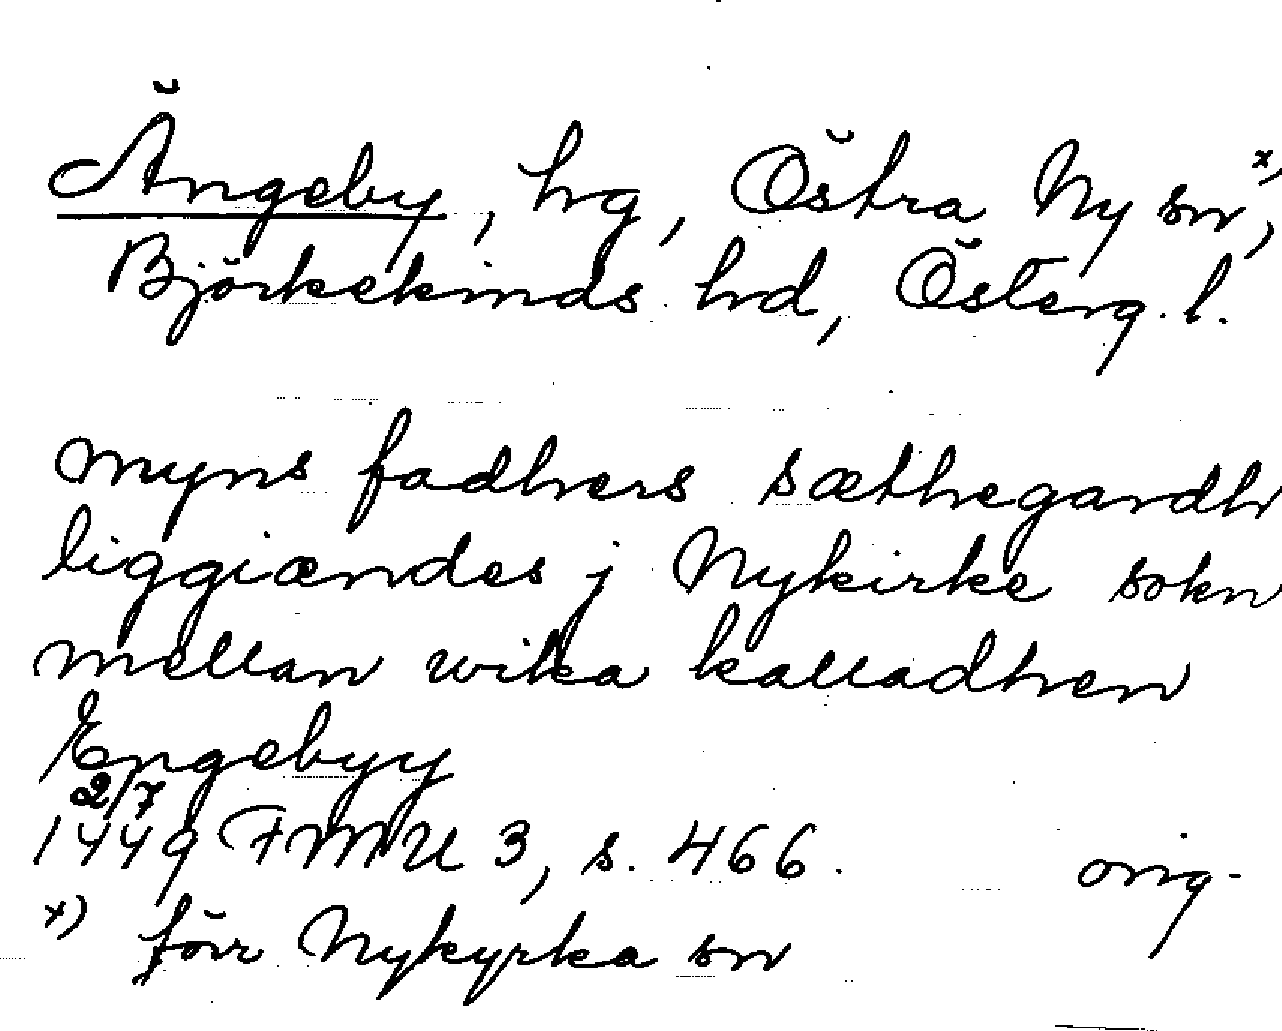 Ängeby, hg, Östra Ny sn x),
Björkekinds hd, Österg. l.
myns fadhers sæthegardh
liggiændes j Nykirke sokn
mellan wika kalladhen
Engebyy
2/7
1449 FMU 3, s. 466. orig.
x) förr Nykyrka sn